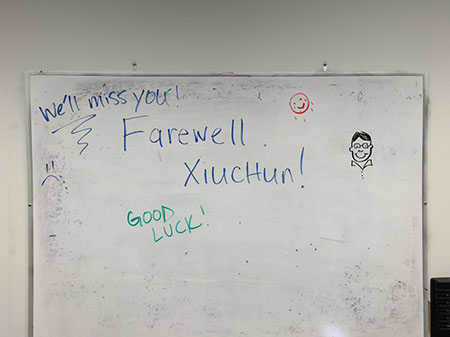 We'll miss you!
Farewell
XIUCHUN!
GOOD
LUCK!